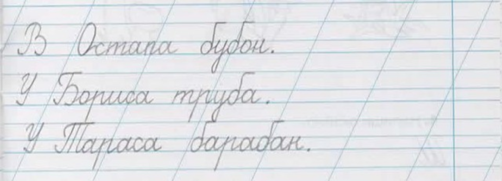 В Остапа бубон.
У Бориса труба.
У Тараса барабан.